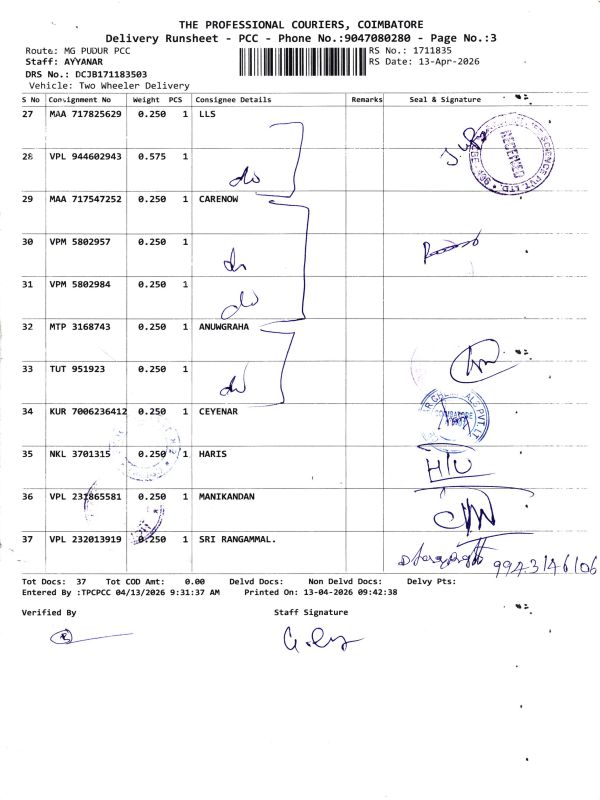 THE PROFESSIONAL COURIERS, COIMBATORE
Delivery Runsheet - PCC - Phone No.:9047080280 - Page No.:3
Route: MG PUDUR PCC RS No.: 1711835
Staff: AYYANAR RS Date: 13-Apr-2026
DRS No.: DCJB171183503
Vehicle: Two Wheeler Delivery
S No Consignment No Weight PCS Consignee Details Remarks Seal & Signature
27 MAA 717825629 0.250 1 LLS
RECEIVED
28 VPL 944602943 0.575 1
do
29 MAA 717547252 0.250 1 CARENOW
30 VPM 5802957 0.250 1
do
31 VPM 5802984 0.250 1
do
32 MTP 3168743 0.250 1 ANUWGRAHA
33 TUT 951923 0.250 1
do
34 KUR 7006236412 0.250 1 CEYENAR
COIMBATORE
35 NKL 3701315 0.250 1 HARIS
36 VPL 231865581 0.250 1 MANIKANDAN
37 VPL 232013919 0.250 1 SRI RANGAMMAL.
9943146106
Tot Docs: 37 Tot COD Amt: 0.00 Delvd Docs: Non Delvd Docs: Delvy Pts:
Entered By :TPCPCC 04/13/2026 9:31:37 AM Printed On: 13-04-2026 09:42:38
Verified By Staff Signature